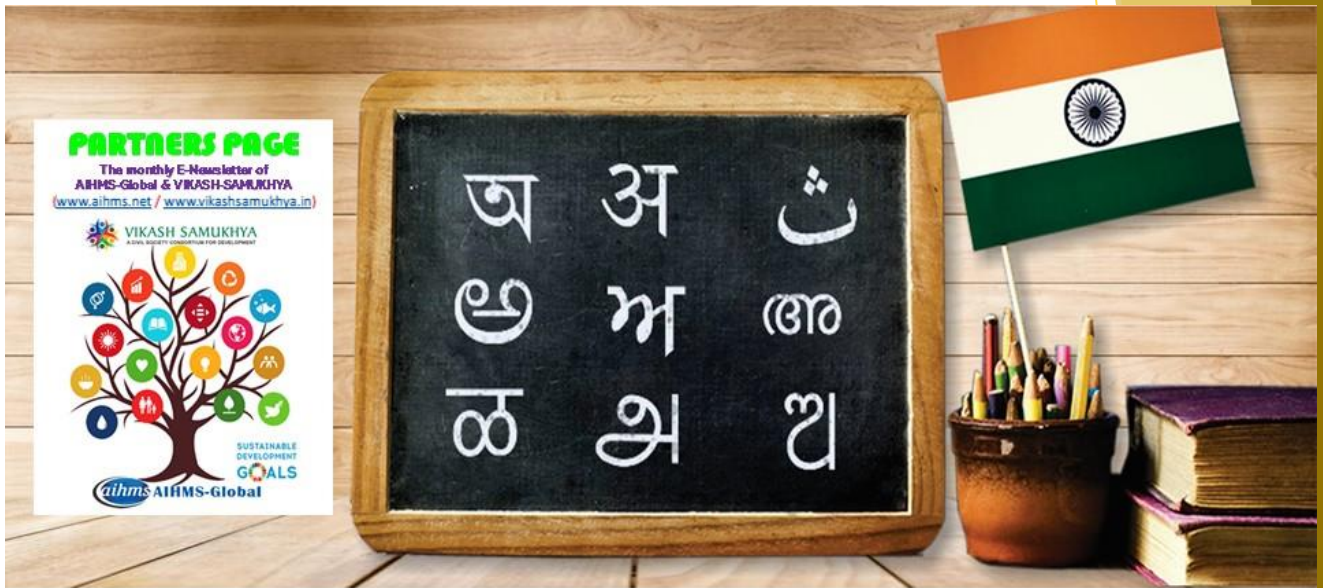 PARTNERS PAGE
The monthly E-Newsletter of
AIHMS-Global & VIKASH-SAMUKHYA
(www.aihms.net / www.vikashsamukhya.in)
VIKASH SAMUKHYA
A CIVIL SOCIETY CONSORTIUM FOR DEVELOPMENT
SUSTAINABLE
DEVELOPMENT
GOALS
aihms AIHMS-Global
অ अ ث
అ ਅ അ
ळ அ ଅ